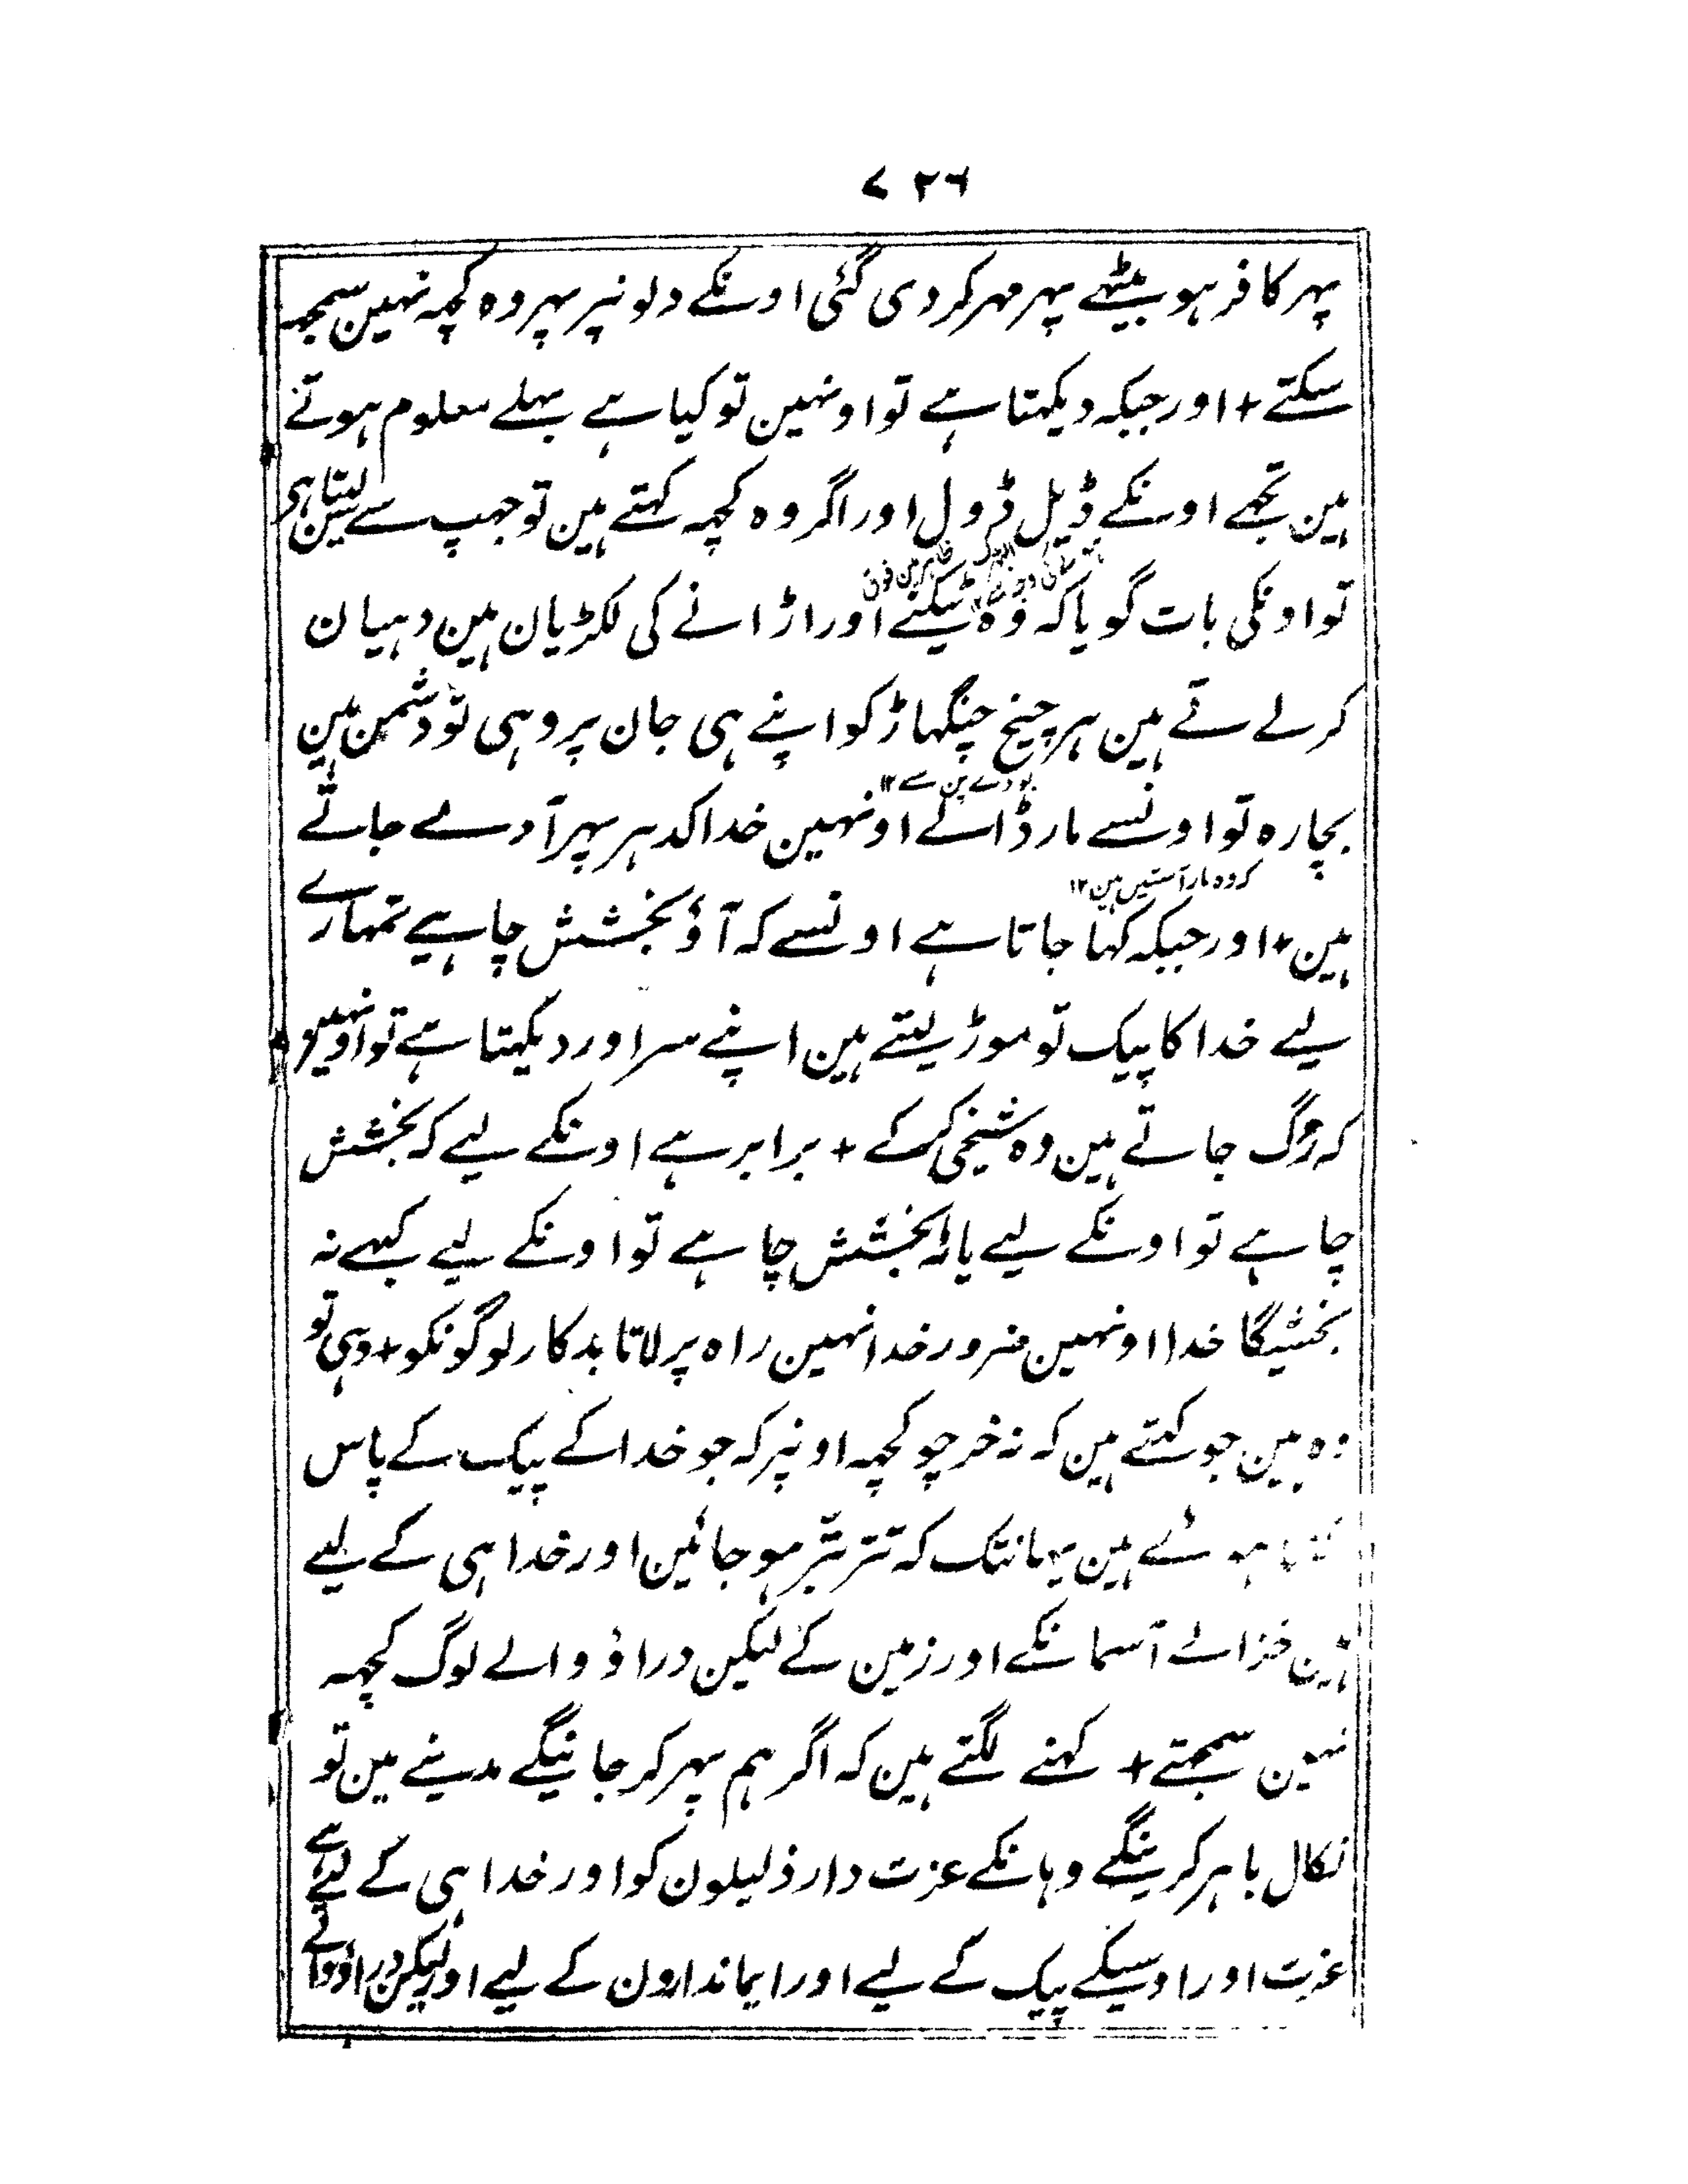 ۷۲۶
پہر کافر ہو بیٹھے پہر مہر کر دی گئی اونکے دلونپر پہر وہ کچہ نہین سمجہ
سکتے + اور جبکہ دیکہتا ہے تو اونہین تو کیا ہے بہلے معلوم ہوتے
ہین تجھے اونکے ڈیل ڈول اور اگر وہ کچہ کہتے ہین تو جہپ سے سن لیتا ہی
تو اونکی بات گویا کہ وہ ٹیکنے اور اڑانے کی لکڑیان ہین دہیان
کر لے تے ہین ہر چیخ چنگہاڑ کو اپنے ہی جان پر وہی تو دشمن ہین
بودے پن سے ۱۲
بچارہ تو اونسے مار ڈالے اونہین خدا کدہر پہر آدے جاتے
کہ وہ مار آستین ہین ۱۲
ہین + اور جبکہ کہا جاتا ہے اونسے کہ آؤ بخشش چاہیے تمہارے
لیے خدا کا پیک تو موڑ لیتے ہین اپنے سر اور دیکہتا ہے تو اونہین
کہ رُگ جاتے ہین وہ شیخی کر کے + برابر ہے اونکے لیے کہ بخشش
چاہے تو اونکے لیے یا نہ بخشش چاہے تو اونکے لیے کبہے نہ
بخشیگا خدا اونہین ضرور خدا نہین راہ پر لاتا بدکار لوگونکو + وہی تو
وہ ہین جو کہتے ہین کہ نہ خرچو کچہہ اونپر کہ جو خدا کے پیک کے پاس
ہوئے ہین یہانتک کہ تتر بتر ہو جائین اور خدا ہی کے لیے
ہین خزانے آسمانکے اور زمین کے لیکن دراؤ والے لوگ کچہہ
نہین سمجہتے + کہنے لگتے ہین کہ اگر ہم پہر کر جائینگے مدینے مین تو
نکال باہر کرینگے وہانکے عزت دار ذلیلون کو اور خدا ہی کے لیے ہے
عزت اور اوسیکے پیک کے لیے اور ایماندارون کے لیے اور لیکن دراؤ والے